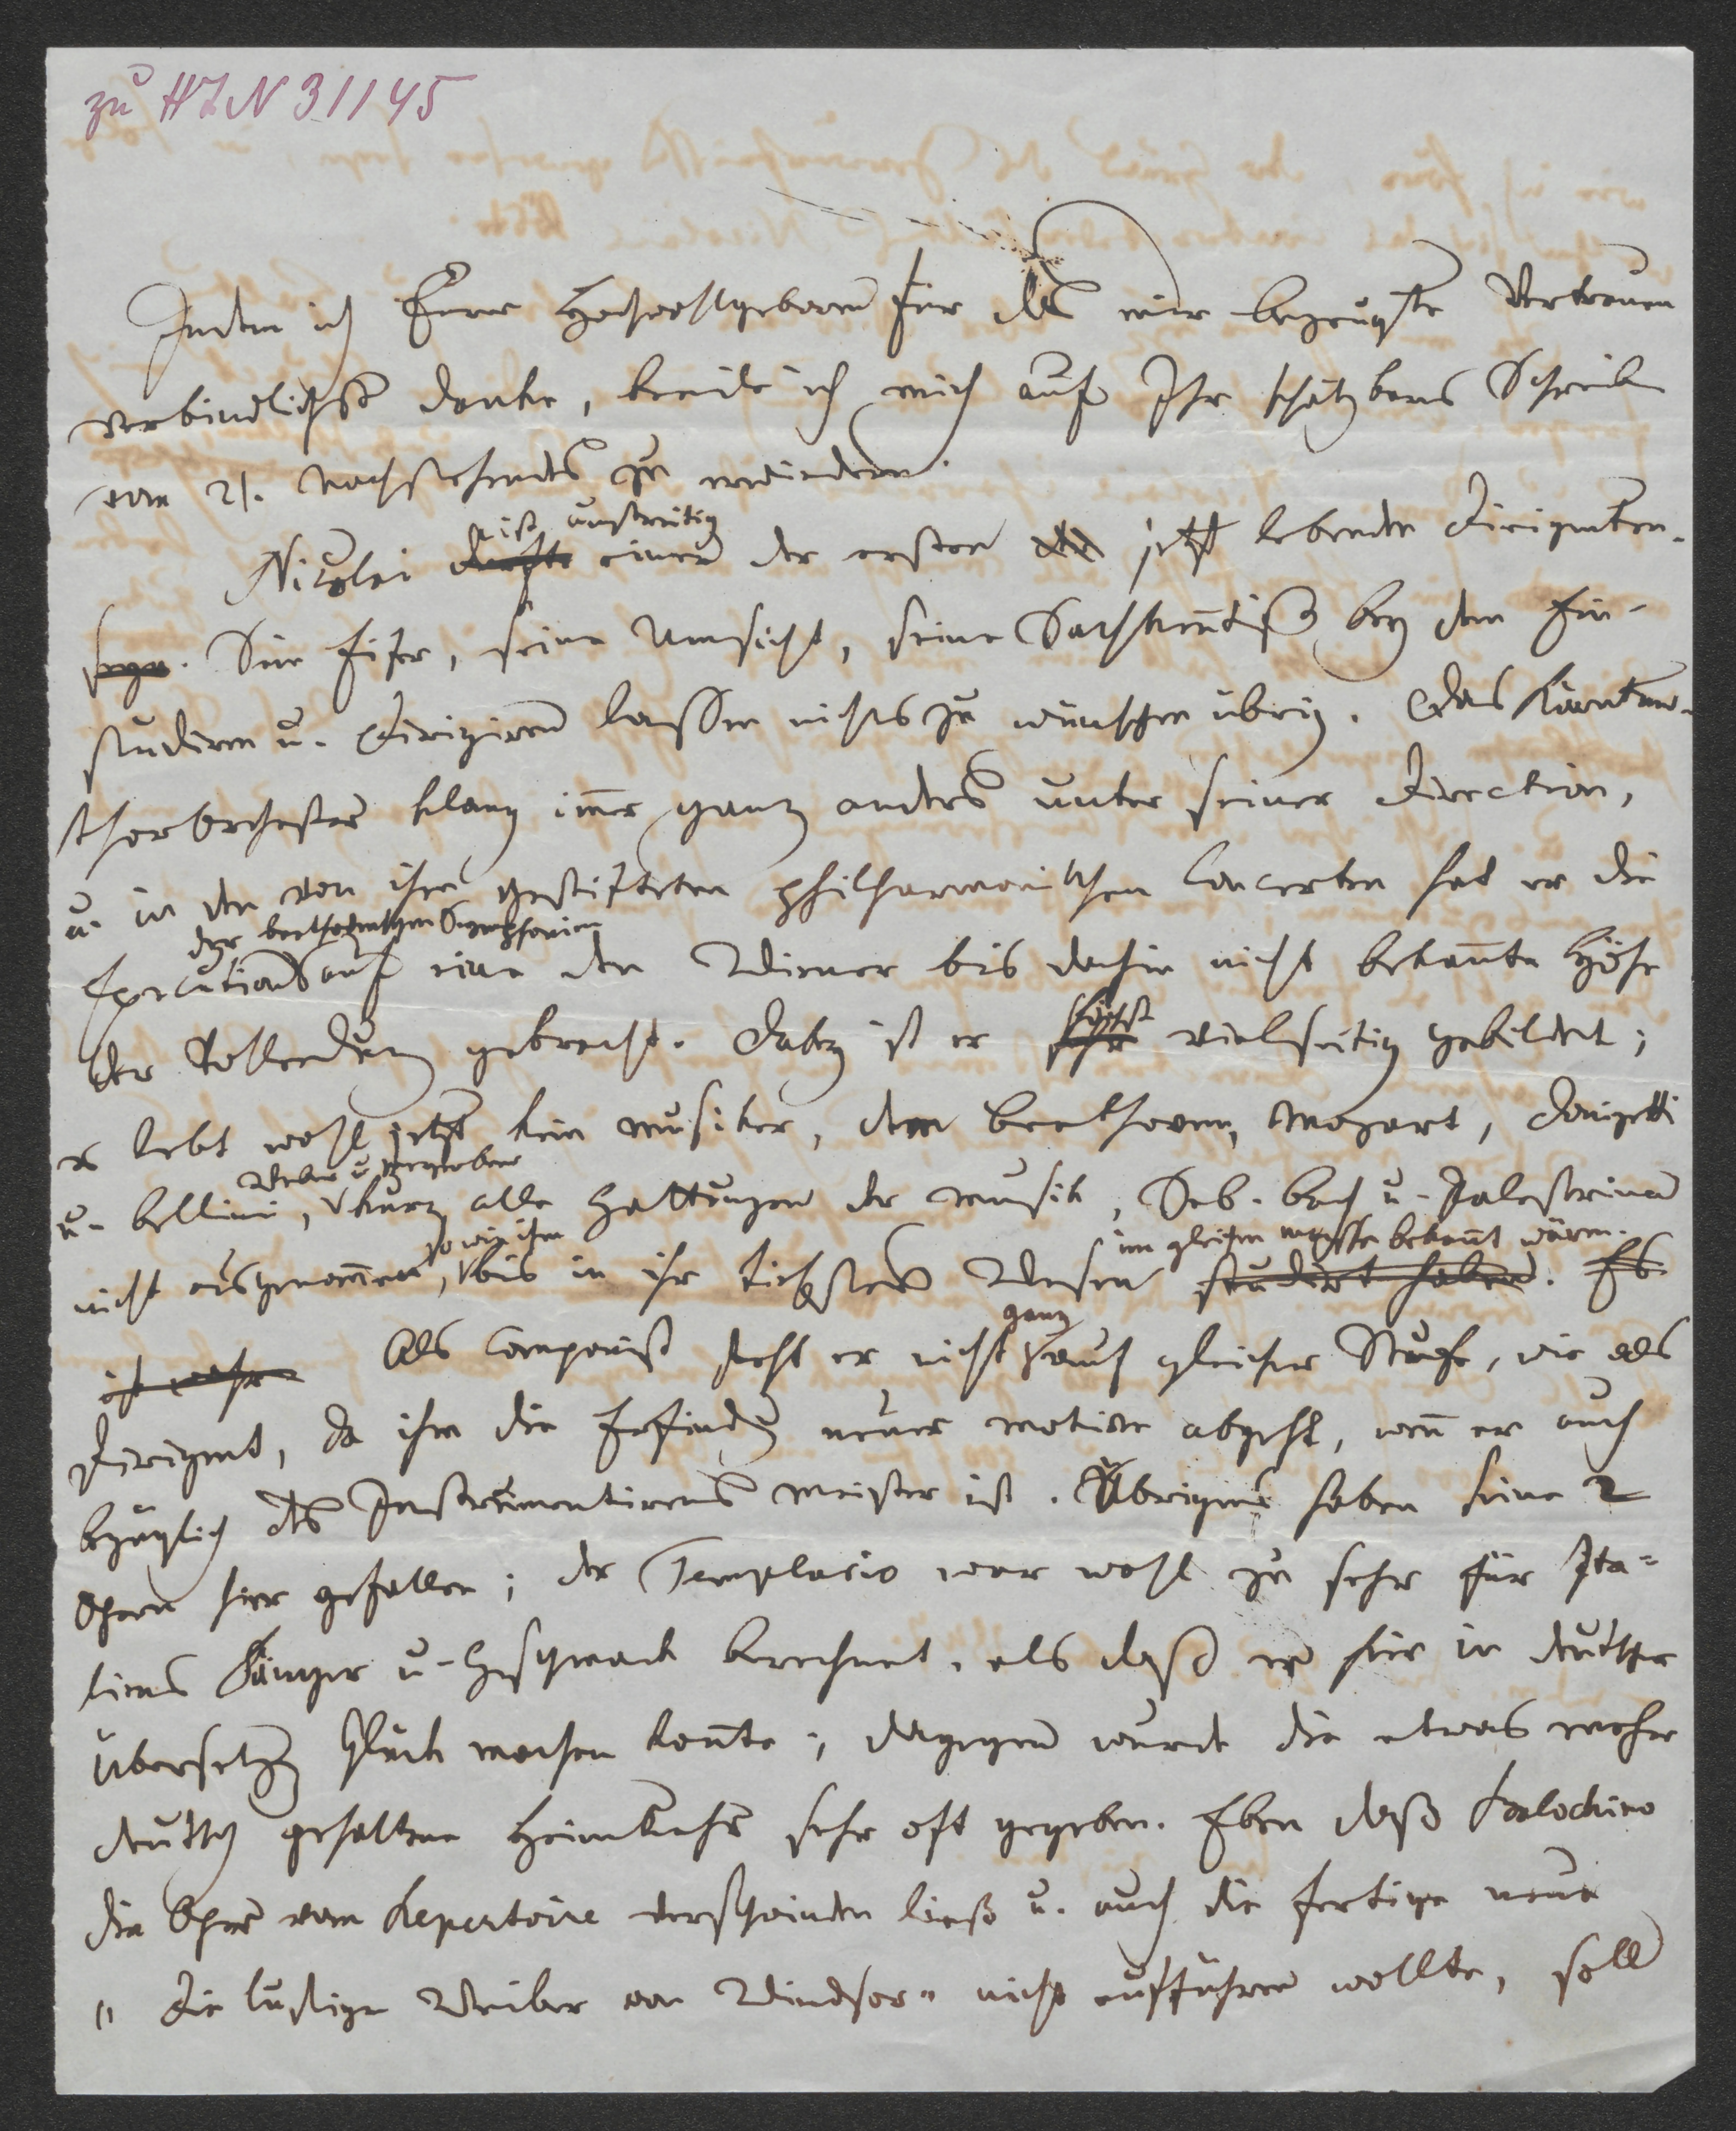 zu HJN 31145
Indem ich Euer Hochwohlgeboren für das mir bezeugte Vertrauen
verbindlichst danke, beeile ich mich auf Ihr schätzbares Schreiben
vom 21. Nachstehendes zu erwiedern.
ist unstreitig
Nicolai dürfte einer der ersten der jetzt lebenden Dirigenten
seyn. Sein Eifer, seine Umsicht, seine Sachkenntniß bey dem Ein-
studiren u. Dirigiren lassen nichts zu wünschen übrig. Das Kärntner-
thororchester klang im̅er ganz anders unter seiner Direction,
u. in den von ihm gestifteten philharmonischen Concerten hat er die
der beethovenschen Symphonien
Execution auf eine den Wienern bis dahin nicht bekan̅te Höhe
der Vollendung gebracht. Dabey ist er sehr vielseitig gebildet;
höchst
es lebt wohl jetzt kein Musiker, dem Beethoven, Mozart, Donizetti
Weber u. Meyerbeer
u. Bellini, kurz alle Gattungen der Musik, Seb. Bach u. Palestrina
so wie ihm
im gleichen Maße bekan̅t wären.
nicht ausgenom̅en, bis in ihr tiefstes Wesen studirt haben. Es
ist wahr
ganz
Als Componist steht er nicht auf gleicher Stufe, wie als
Dirigent, da ihm die Erfindg neuer Motive abgeht, wen̅ er auch
bezüglich des Instrumentirens Meister ist. Übrigens haben seine 2
Opern hier gefallen; der Templario war wohl zu sehr für Ita-
liens Sänger u. Geschmack berechnet, als daß er hier in deutscher
Übersetzg Glück machen kon̅te; dagegen wurde die etwas mehr
deutsch gehaltene Heimkehr sehr oft gegeben. Eben daß Balochino
die Oper vom Repertoire verschwinden ließ u. auch die fertige neue
"Die lustigen Weiber von Windsor" nicht aufführen wollte, soll